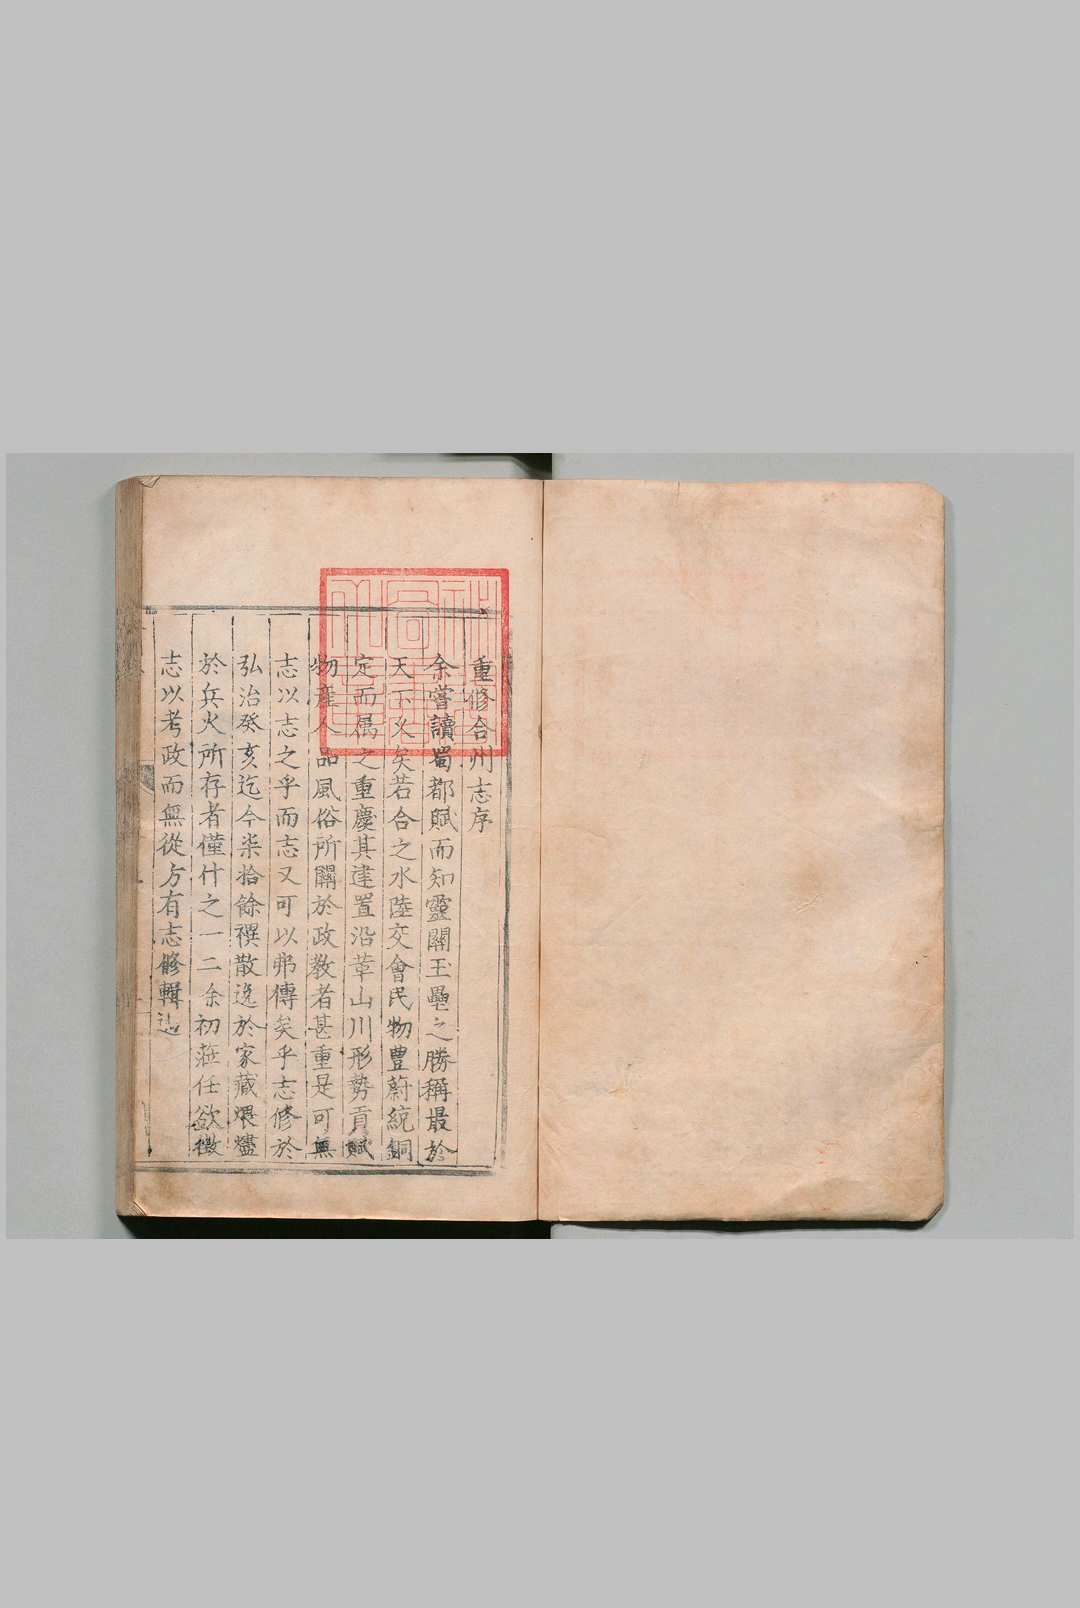 重修合州志序
余嘗讀蜀都賦而知靈關玉壘之勝稱最於
天下久矣若合之水陸交會民物豐蔚統銅
定而属之重慶其建置沿革山川形勢貢賦
物產人品風俗所關於政教者甚重是可無
志以志之乎而志又可以弗傳矣乎志修於
弘治癸亥迄今柒拾餘禩散逸於家藏煨燼
於兵火所存者僅什之一二余初蒞任欲徵
志以考政而無從方有志修輯迨